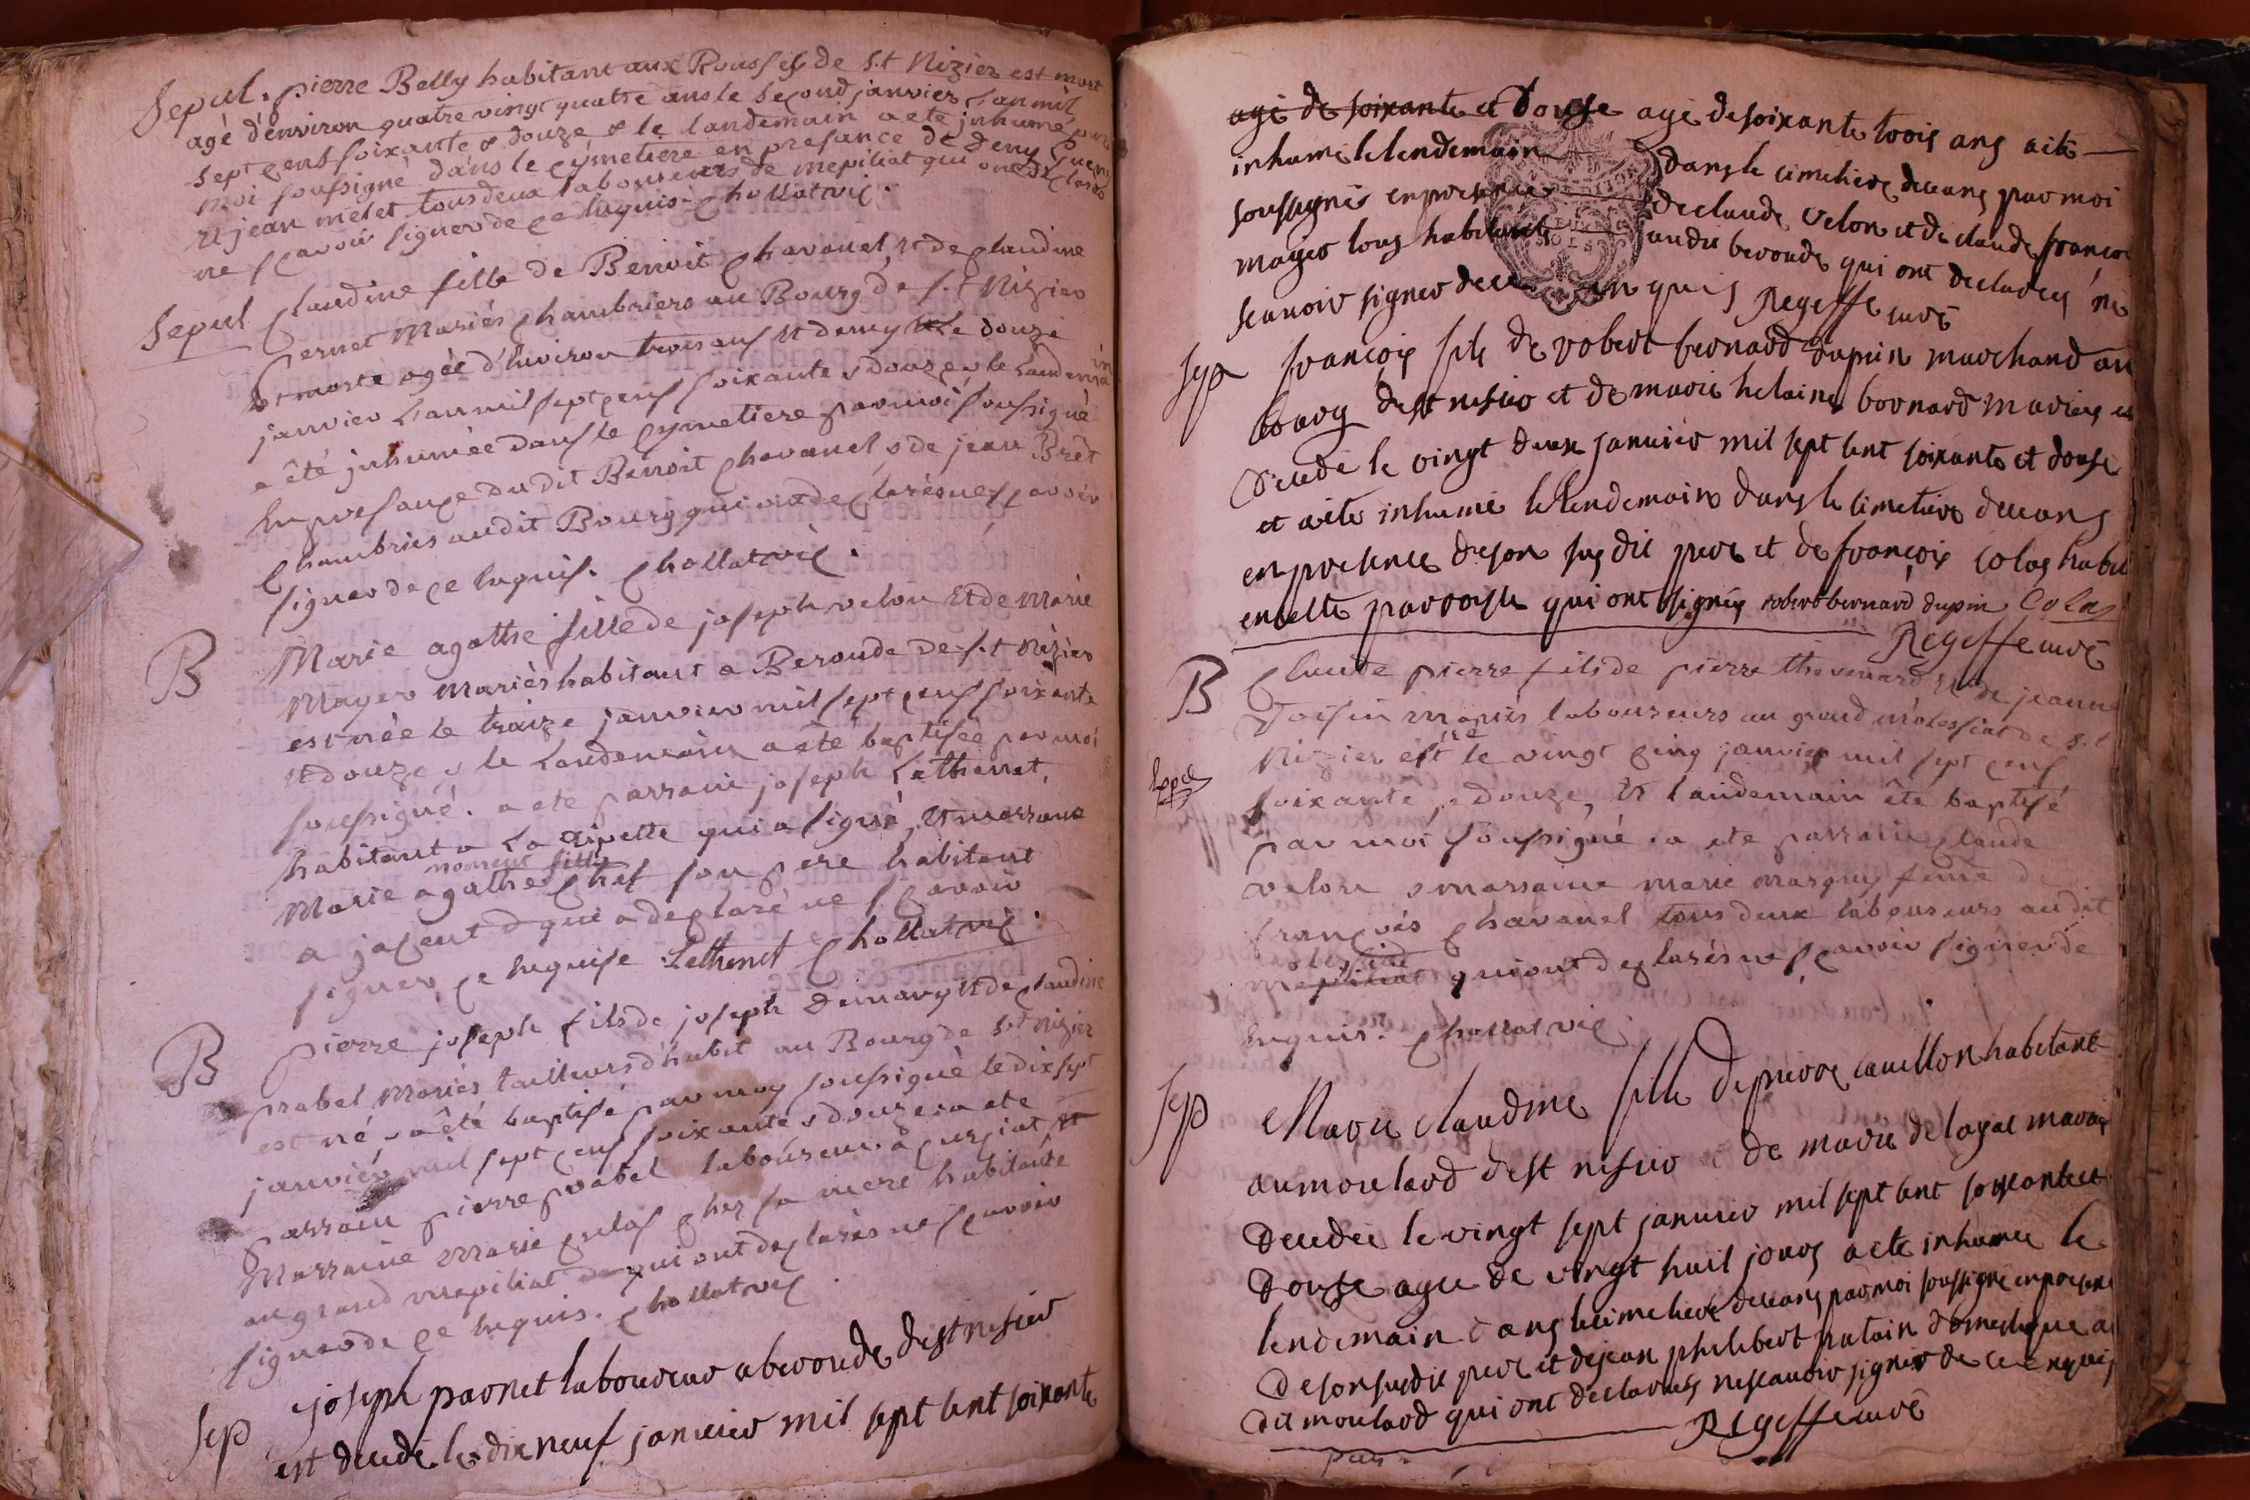 Sepul. pierre Belly habitant aux Rousses de S.t Nizier est mort
agé d'environ quatre vingt quatre ans le second janvier L'an mil
sept cent soixante & douze & le landemain a eté jnhumé par
moi soussigné dans le cymetiere en presance de Deny
et jean melet tous deux laboureurs de mepiliat qui ont declaré
ne sçavoir signer de ce enquis. chollat vic.
Sepul Claudine fille de Benoit Chavanel, et de Claudine
Cernet Mariés chambriers au Bourg de S.t Nizier
est morte agée d'Environ trois ans et demy le douze
janvier L'an mil sept cens soixante & douze & le Landemain
a êté jnhumée dans le cymetiere par moi soussigné
En presance du dit Benoit Chavanel & de jean Bret
Chambrier au dit Bourg qui on declarés ne sçavoir
signer de ce enquis. Chollat vic.
B Marie agathe fille de joseph velon Et de Marie
Mayer Mariés habitant a Beroude de S.t Nizier
est née le traize janvier mil sept cens soixante
et douze & le Landemain a eté baptisée par moi
soussigné. a eté parrain joseph Lethenet,
habitant a La Ripette qui a signé, et marraine
Marie agathe Chez son pere habitant
a jayent & qui a declaré ne sçavoir
signer ce enquise Lethenet Chollat vic.
B pierre joseph fils de joseph Demary et de Claudine
prabel Mariés tailleurs d'habit au Bourg de S.t Nizier
est né & a êté baptisé par moy soussigné le dix sept
janvier mil sept cens soixante & douze. a ete
parrain pierre prabel laboureur à curciat, et
Marraine Marie Chez sa mere habitante
au grand mepiliat qui ont declarés ne sçavoir
signer de ce enquis. Chollat vic
Sep joseph parnet laboureur a beroude de st nisier
est decedé le dix neuf janvier mil sept cent soixante
agé de soixante et Douse agé de soixante trois ans a ete
inhumé le lendemain dans le cimetiere deceans par moi
soussignés en presence de claude velon et de claude françois
mayer tous habitants audit beroude qui ont declarés ne
scavoir signer de ce enquis Regeffe curé
sep françois fils de robert bernard dupin marchand au
bourg de st nisier et de marie helaine bornard mariés est
decedé le vingt deux janvier mil sept cent soixante et douse
et a ete inhumé le lendemain dans le cimetiere deceans
en presence de son susdit pere et de françois colas habit
en cette parroisse qui ont signés robert bernard dupin Colas
Regeffe curé
B Claude pierre fils de pierre thevenard et de jeanne
Voisin mariés laboureurs au grand molessiat de S.t
Nizier est né le vingt cinq janvier mil sept cens
soixante & douze, et landemain êté baptisé
par moi soussigné. a ete parrain claude
velon & marraine marie marguy feme de
françois chavanel tous deux laboureurs au dit
molessiat
mepiliat qui ont declarés ne sçavoir signer de
enquis. Chollat vic
sep Marie claudine fille de pierre cauillon habitant
au moulard de st nisier & de marie delayal mariés
decedée le vingt sept janvier mil sept cent soixante et
douse agée de vingt huit jours a ete inhumée le
lendemain dans le cimetiere deceans par moi soussigné en presence
de son susdit pere et de jean philibert putain domestique au
dit moulard qui ont declarés ne scavoir signer de ce enquis
Regeffe curé